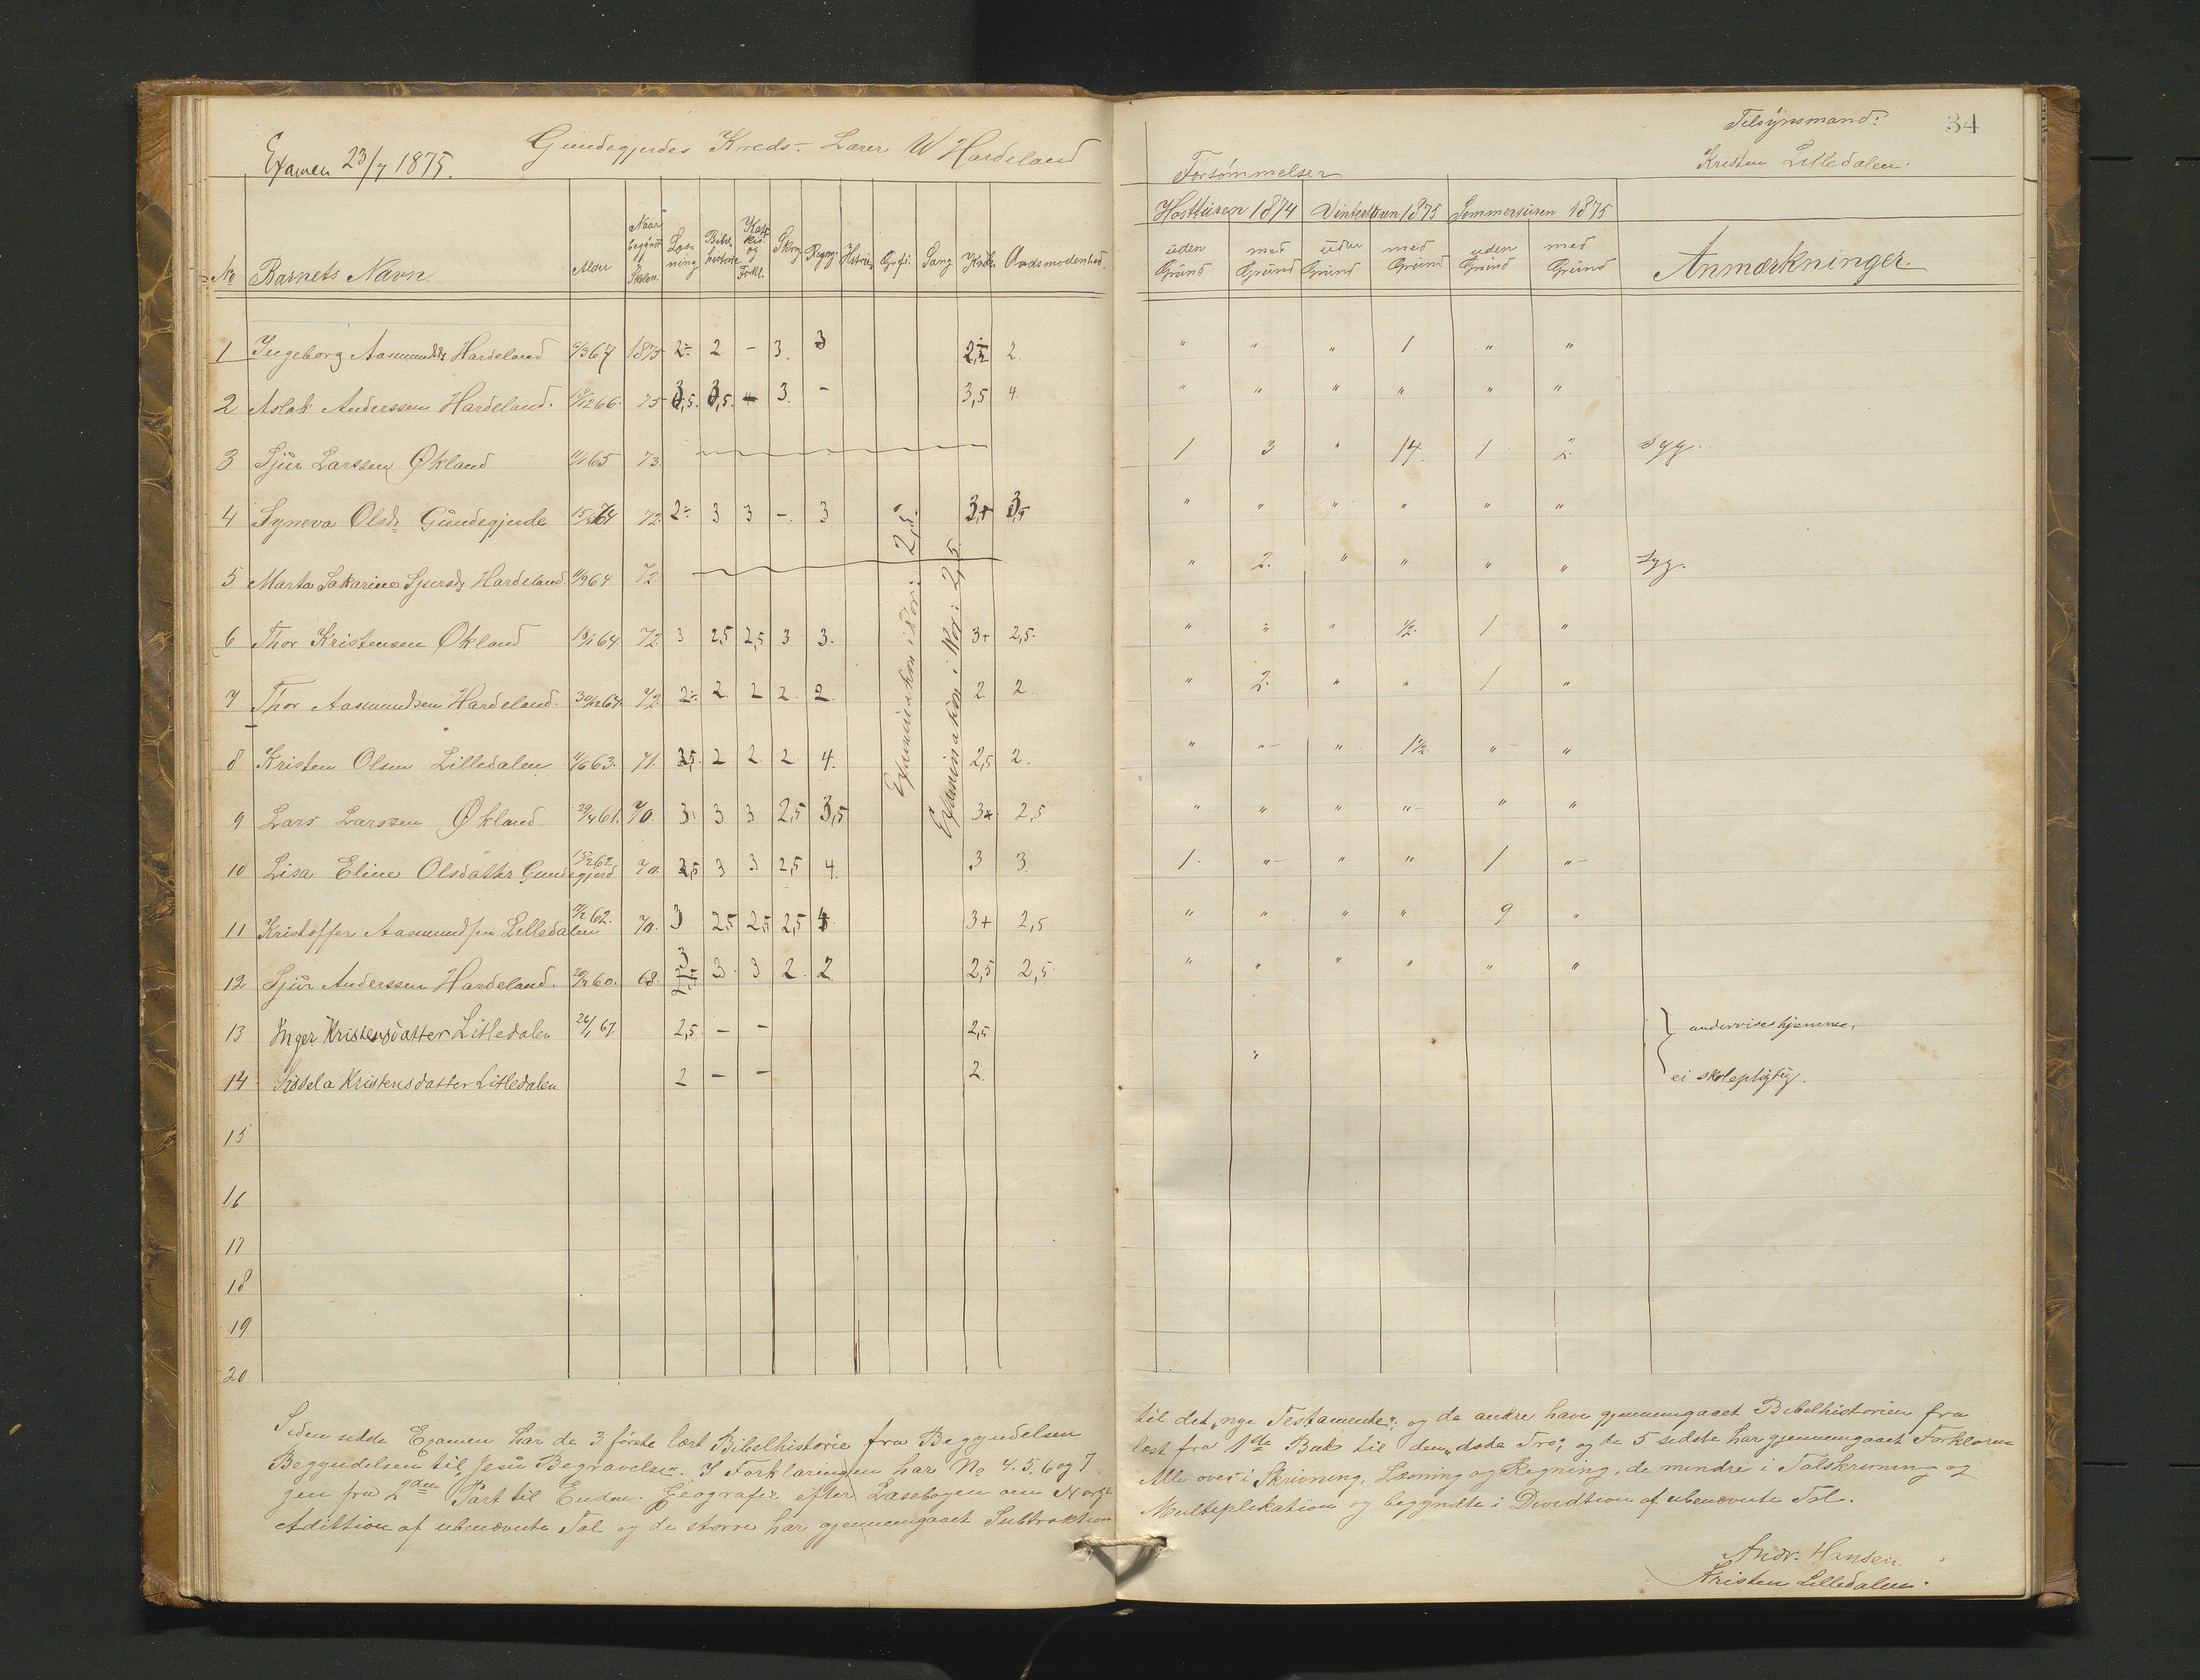 Examen 23/7 1875. Gundegjerdes Kreds - Lærer W Hardeland
Tilsynsmand: 34
Kristen Lilledalen.
Forsømmelser
Høstturen 1874 Vinterturen 1875 Sommerturen 1875
No Barnets Navn. Alder Naar begyndt Skolen. Læsning Bibelhistorie Kate kis. og Forkl. Skrvg Regng. Histrie Grfi: Sang Aandsmodenhed.
uden Grund med Grund uden Grund med Grund uden Grund med Grund Anmærkninger.
1 Ingeborg Aasmundsdr Hardeland 9/3 67 1875 2÷ 2 - 3. 3 2 " " " 1 " "
2 Aslak Anderssen Hardeland. 66. 75 3,5. 3,5. 4 3. - 3,5 4. " " " " " "
3 Sjur Larssen Økland 65 73. 1 3 " 14. 1 2. syg.
4 Syneva Olsdr Gundegjerde 64 72. 2÷ 3 3 -. 3 3+ 3,5 " " " " " "
5 Marta Sakarine Sjursdr Hardeland 64 72 " 2. " " " " syg.
6 Thor Kristensen Økland 64. 72 3 2,5 2,5 3 3. 3+ 2,5. " " " 1/2. 1 "
7 Thor Aasmundsen Hardeland. 30/12 64. 72 2÷. 2. 2 2. 2. 2 2. " 2. " " 1 "
8 Kristen Olsen Lilledalen 63. 71. 2,5. 2 2. 2 4. 2,5 2. " " " 1 1/2. " "
9 Lars Larssen Økland 29/4 61. 70. 3. 3 3 2,5 3,5 3+ 2,5 " " " " " "
10 Lisa Eline Olsdatter Gundegjerd 15/2 62 70. 2,5 3 3 2,5 4. 3 3. 1. " " " 1 "
11 Kristoffer Aasmundsen Lilledalen 62. 70. 3 2,5 2,5 2,5 4. 3+ 2,5 " " " " 9 "
12 Sjur Anderssen Hardeland. 60. 68. 3 3. 3 2. 2 2,5 2,5. " " " " " "
13 Inger Kristensdatter Litledalen 26/1 67. 2,5 - - 2,5 undervises hjemme,
14 Sissela Kristensdatter Litledalen 2 - - 2. " ei skolepligtig.
Examination i Kor: 2,5.
Examination i Kor: 2,5.
15
16
17
18
19
20
Siden sidste Examen har de 3 første læst Bibelhistorie fra Begyndelsen
til det "nye Testamente"; og de andre have gjennemgaaet Bibelhistorien fra
Begyndelsen til "Jesu Begravelse". I Forklaringen har No 4. 5. 6 og 7
læst fra 1ste Bud til den "døde Tro"; og de 5 sidste har gjennemgaaet Forklarin
gen fra 2den Part til Enden. Geografie efter Læsebogen om Norge
Alle øves i Skrivning, Læsning og Regning, de mindre i Talskrivning og
Adittion af ubenævnte Tal og de større har gjennemgaaet Subtraktion
Multiplikation og begyndte i Dividtion af ubenævnte Tal.
Andr. Hansen.
Kristen Lilledalen.